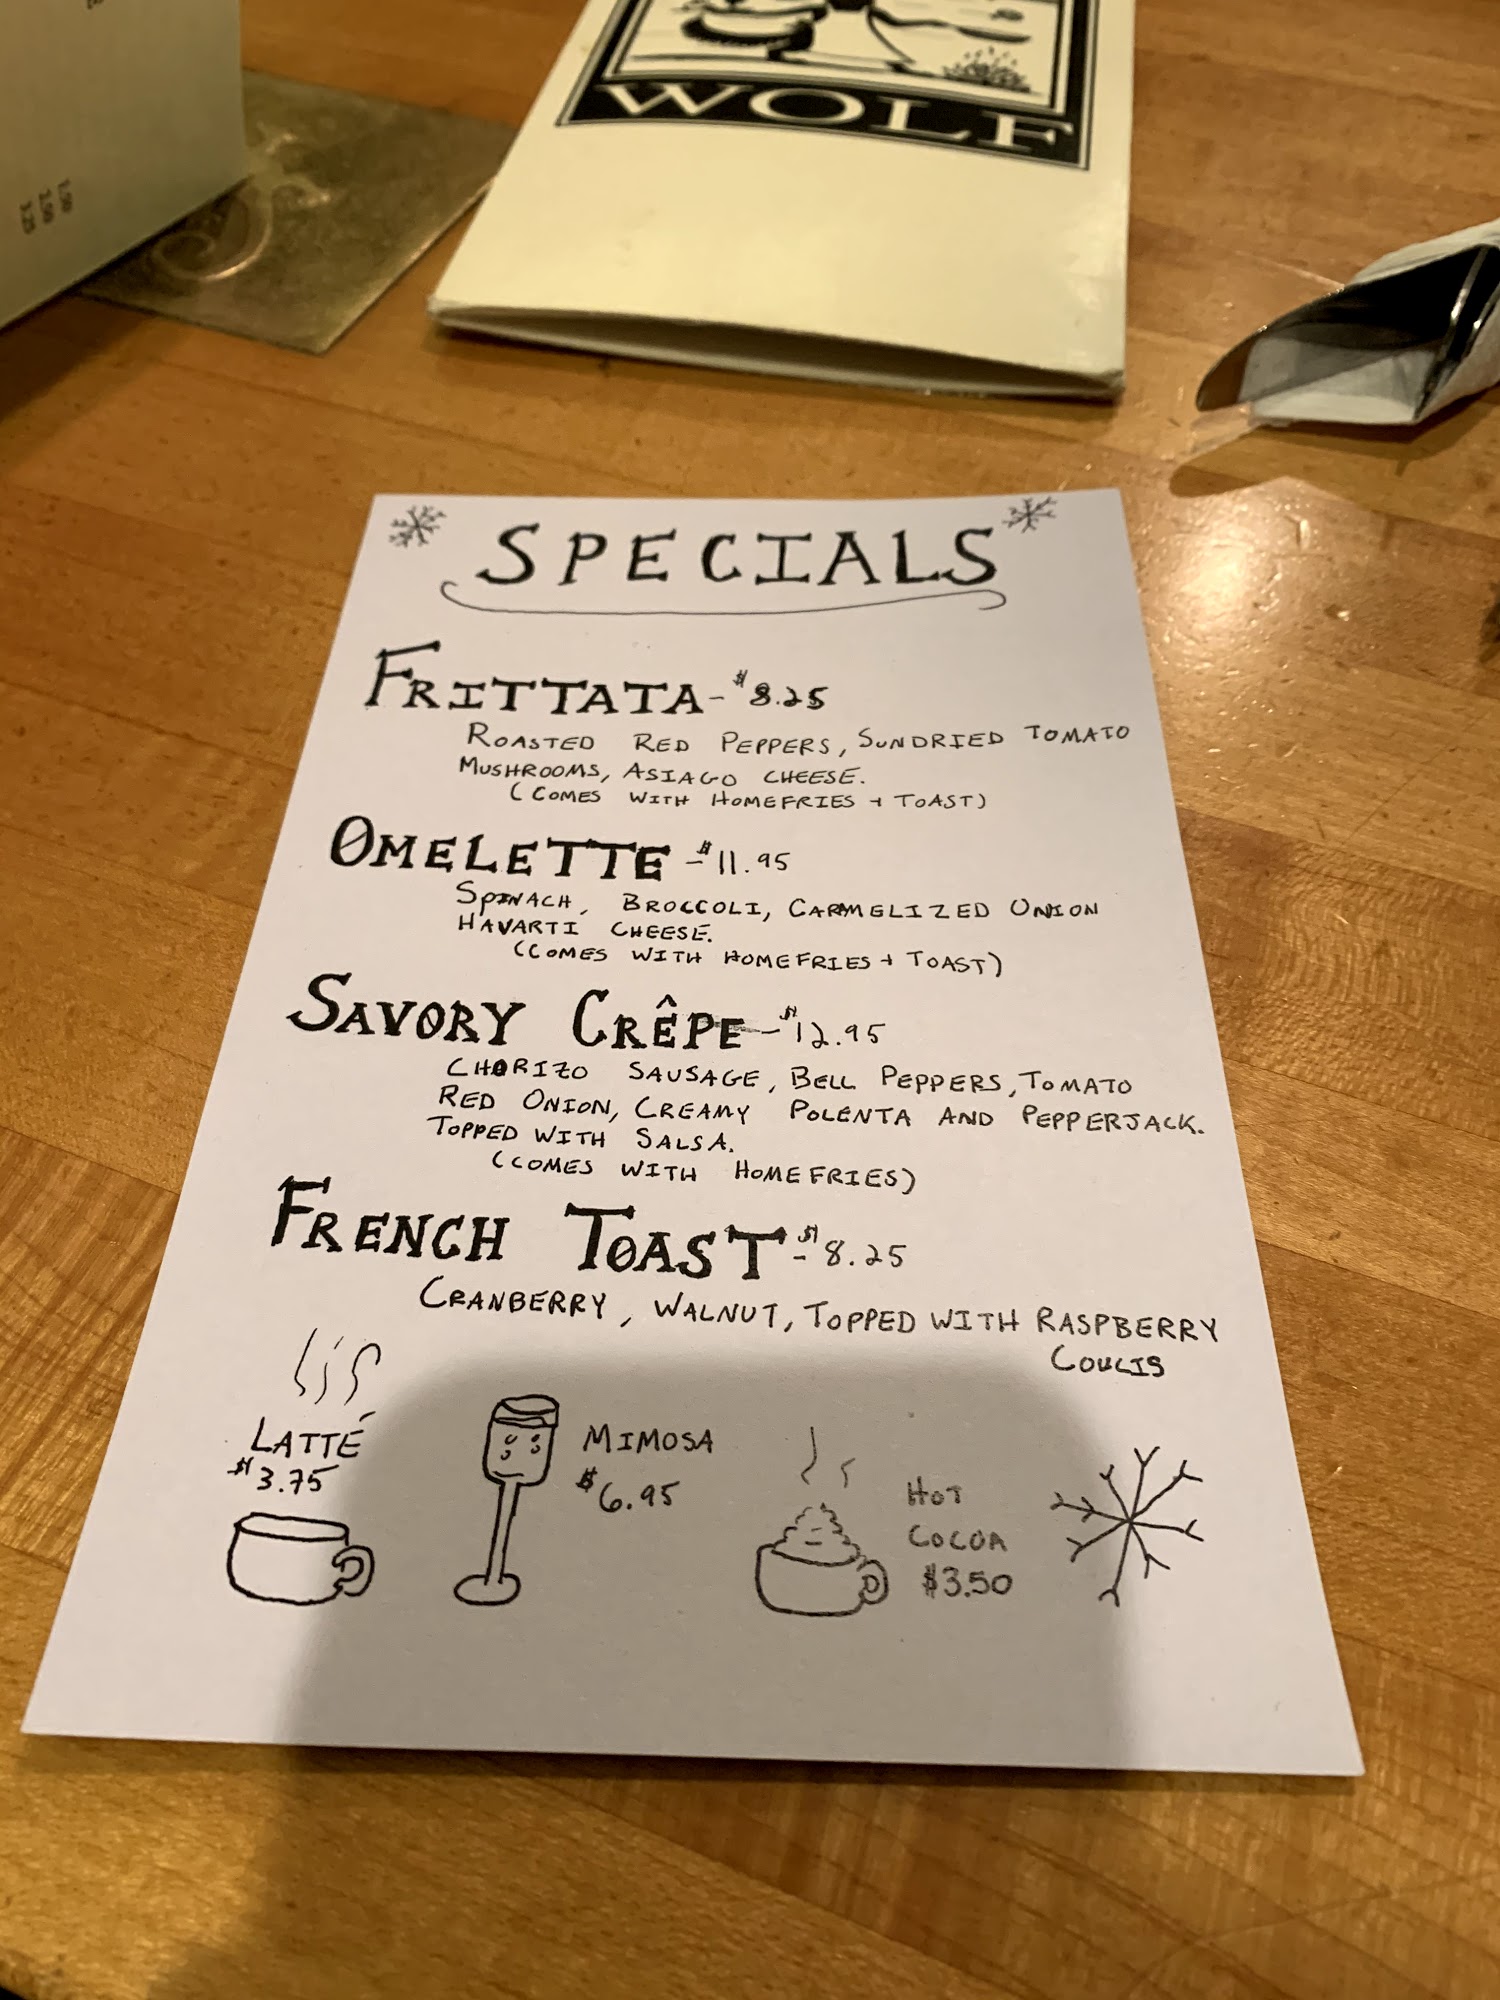 WOLF
1.50
2.50
3.25
SPECIALS
FRITTATA - $8.25
ROASTED RED PEPPERS, SUNDRIED TOMATO
MUSHROOMS, ASIAGO CHEESE.
(COMES WITH HOMEFRIES + TOAST)
OMELETTE - $11.95
SPINACH, BROCCOLI, CARMELIZED ONION
HAVARTI CHEESE.
(COMES WITH HOMEFRIES + TOAST)
SAVORY CRÊPE - $12.95
CHORIZO SAUSAGE, BELL PEPPERS, TOMATO
RED ONION, CREAMY POLENTA AND PEPPERJACK.
TOPPED WITH SALSA.
(COMES WITH HOMEFRIES)
FRENCH TOAST - $8.25
CRANBERRY, WALNUT, TOPPED WITH RASPBERRY
COULIS
LATTÉ
$3.75
MIMOSA
$6.95
HOT
COCOA
$3.50